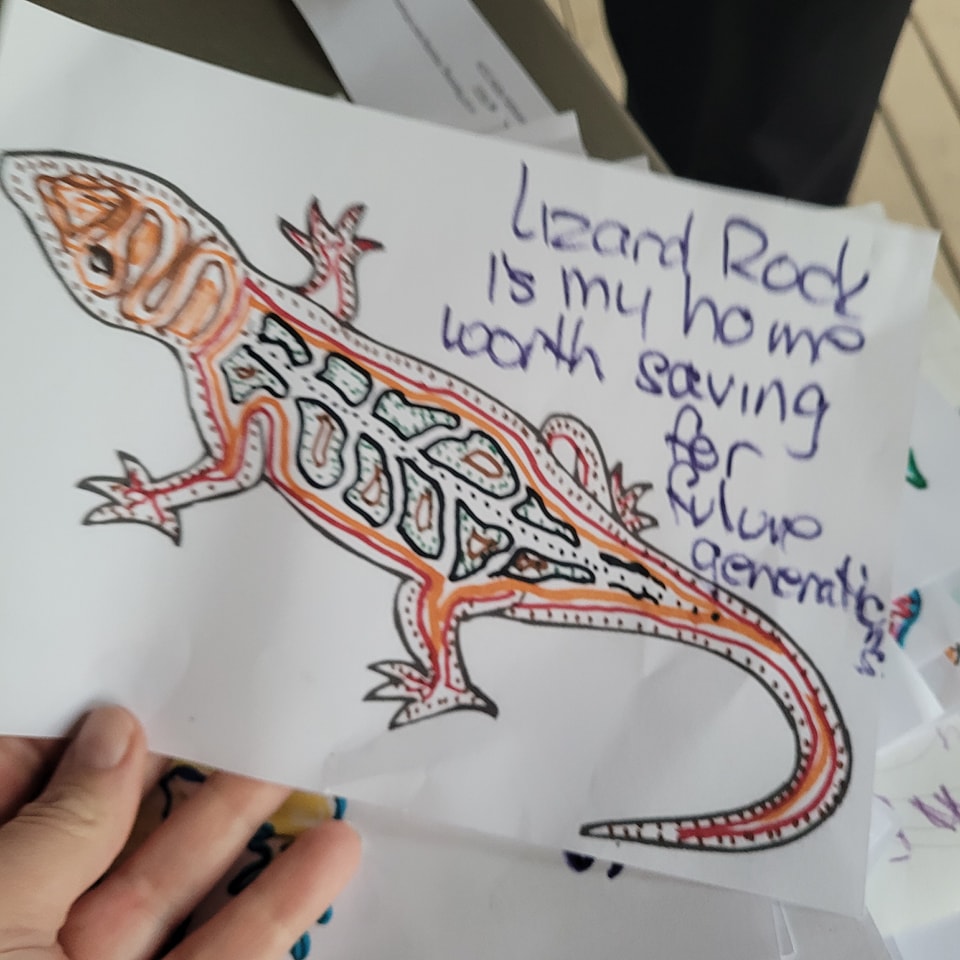 Lizard Rock
is my home
worth saving
for
future
generations